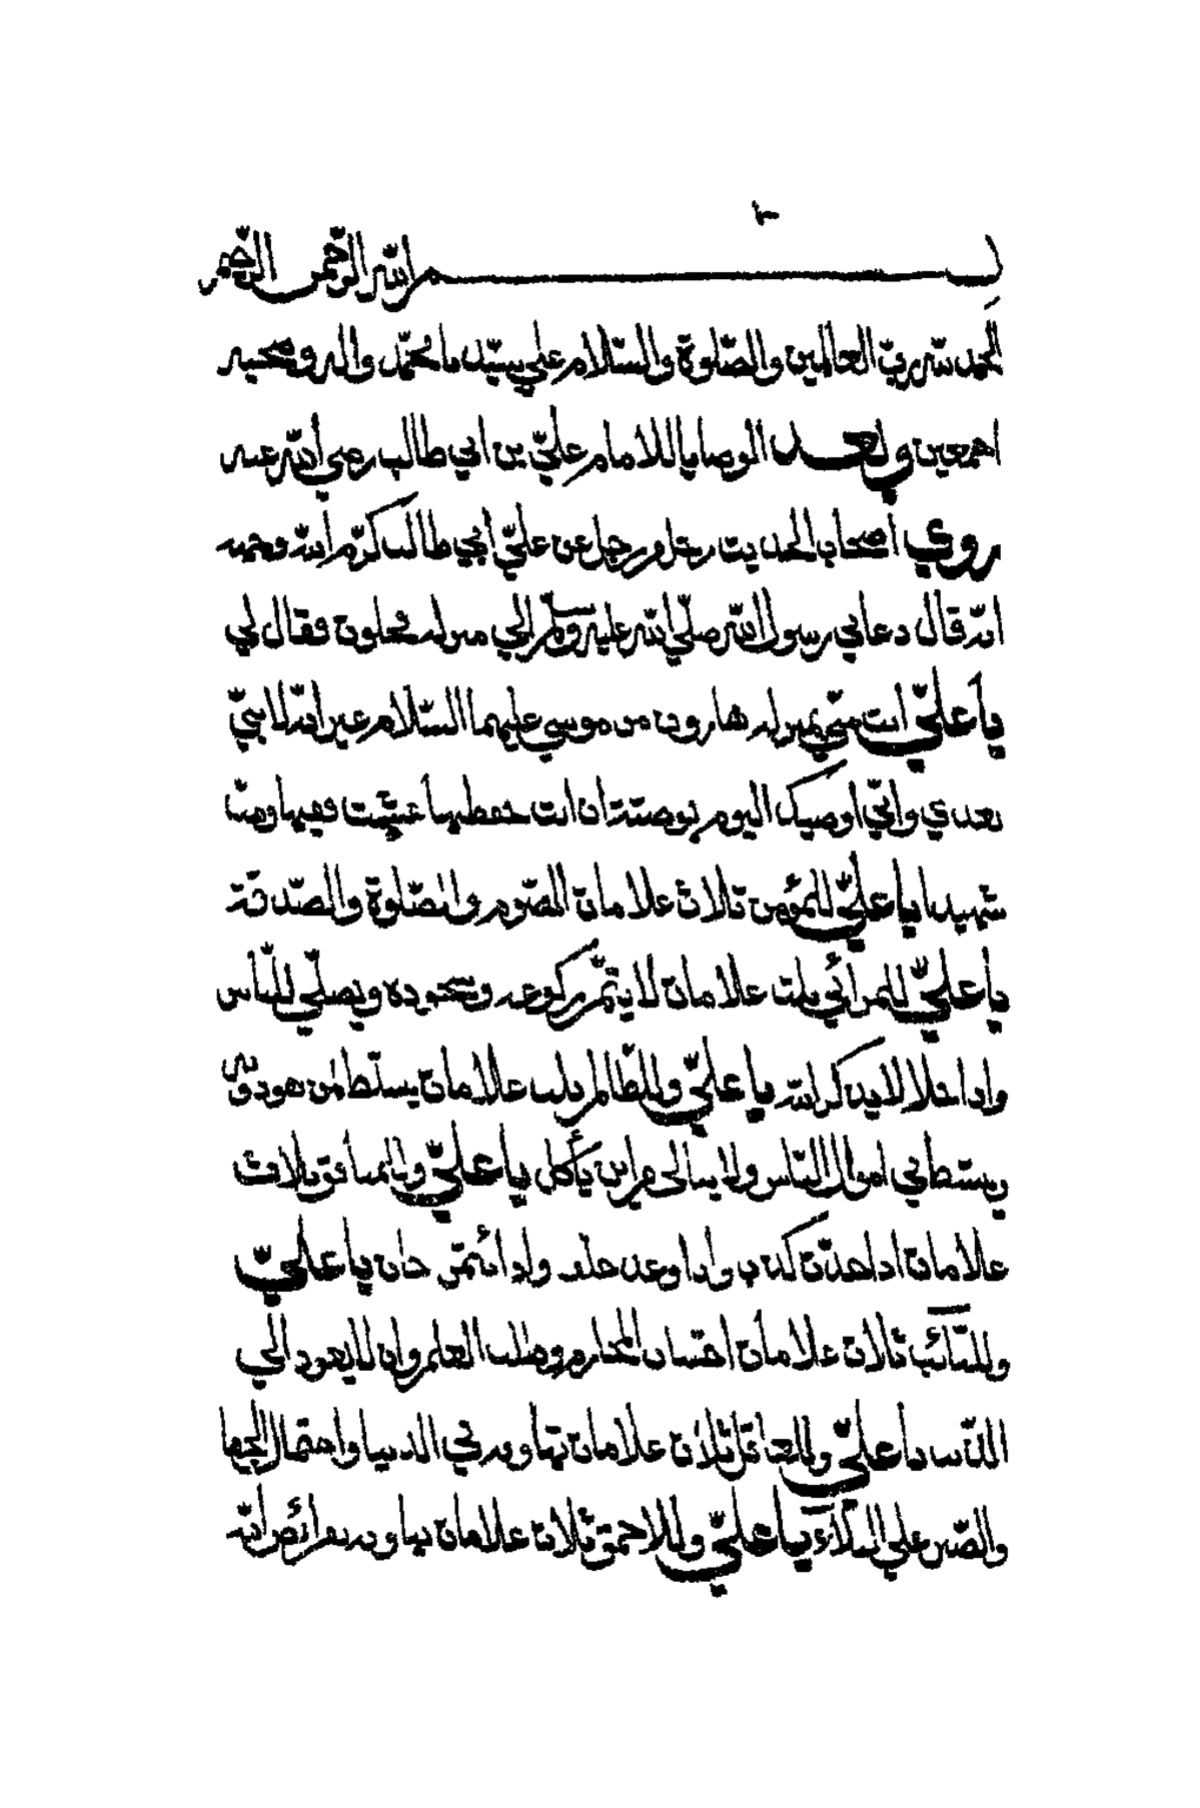 بسم الله الرحمن الرحيم
الحمد لله رب العالمين والصلوة والسلام علي سيدنا محمد واله وصحبه
اجمعين وبعد الوصايا للامام علي بن ابي طالب رضي الله عنه
روي أصحاب الحديث رجل من رجل عن علي أبي طالب كرم الله وجهه
انه قال دعاني رسول الله صلي الله عليه وسلم الي منزله فقال لي
يا علي انت مني بمنزله هارون من موسي عليهما السلام غير انه لا نبي
بعدي واني اوصيك اليوم بوصية ان انت حفظتها عشت فقيها ومت
شهيدا يا علي للمؤمن ثلاث علامات الصوم والصلوة والصدقة
يا علي للمرائي ثلث علامات لا يتم ركوعه وسجوده ويصلي للناس
واذا خلا لا يذكر الله يا علي وللظالم ثلث علامات يستطا من هو دونه
ويستطا في اموال الناس ولا يبالي من اين يأكل يا علي وللمنافق ثلاث
علامات اذا حدث كذب واذا وعد خلف واذا ائتمن خان يا علي
وللتائب ثلاث علامات اجتناب المحارم وطلب العلم وان لا يعود الي
الذنب يا علي وللعاقل ثلاث علامات تهاونه في الدنيا واحتمال الجفا
والصبر علي البلاء يا علي وللاحمق ثلاث علامات تهاونه بفرائض الله